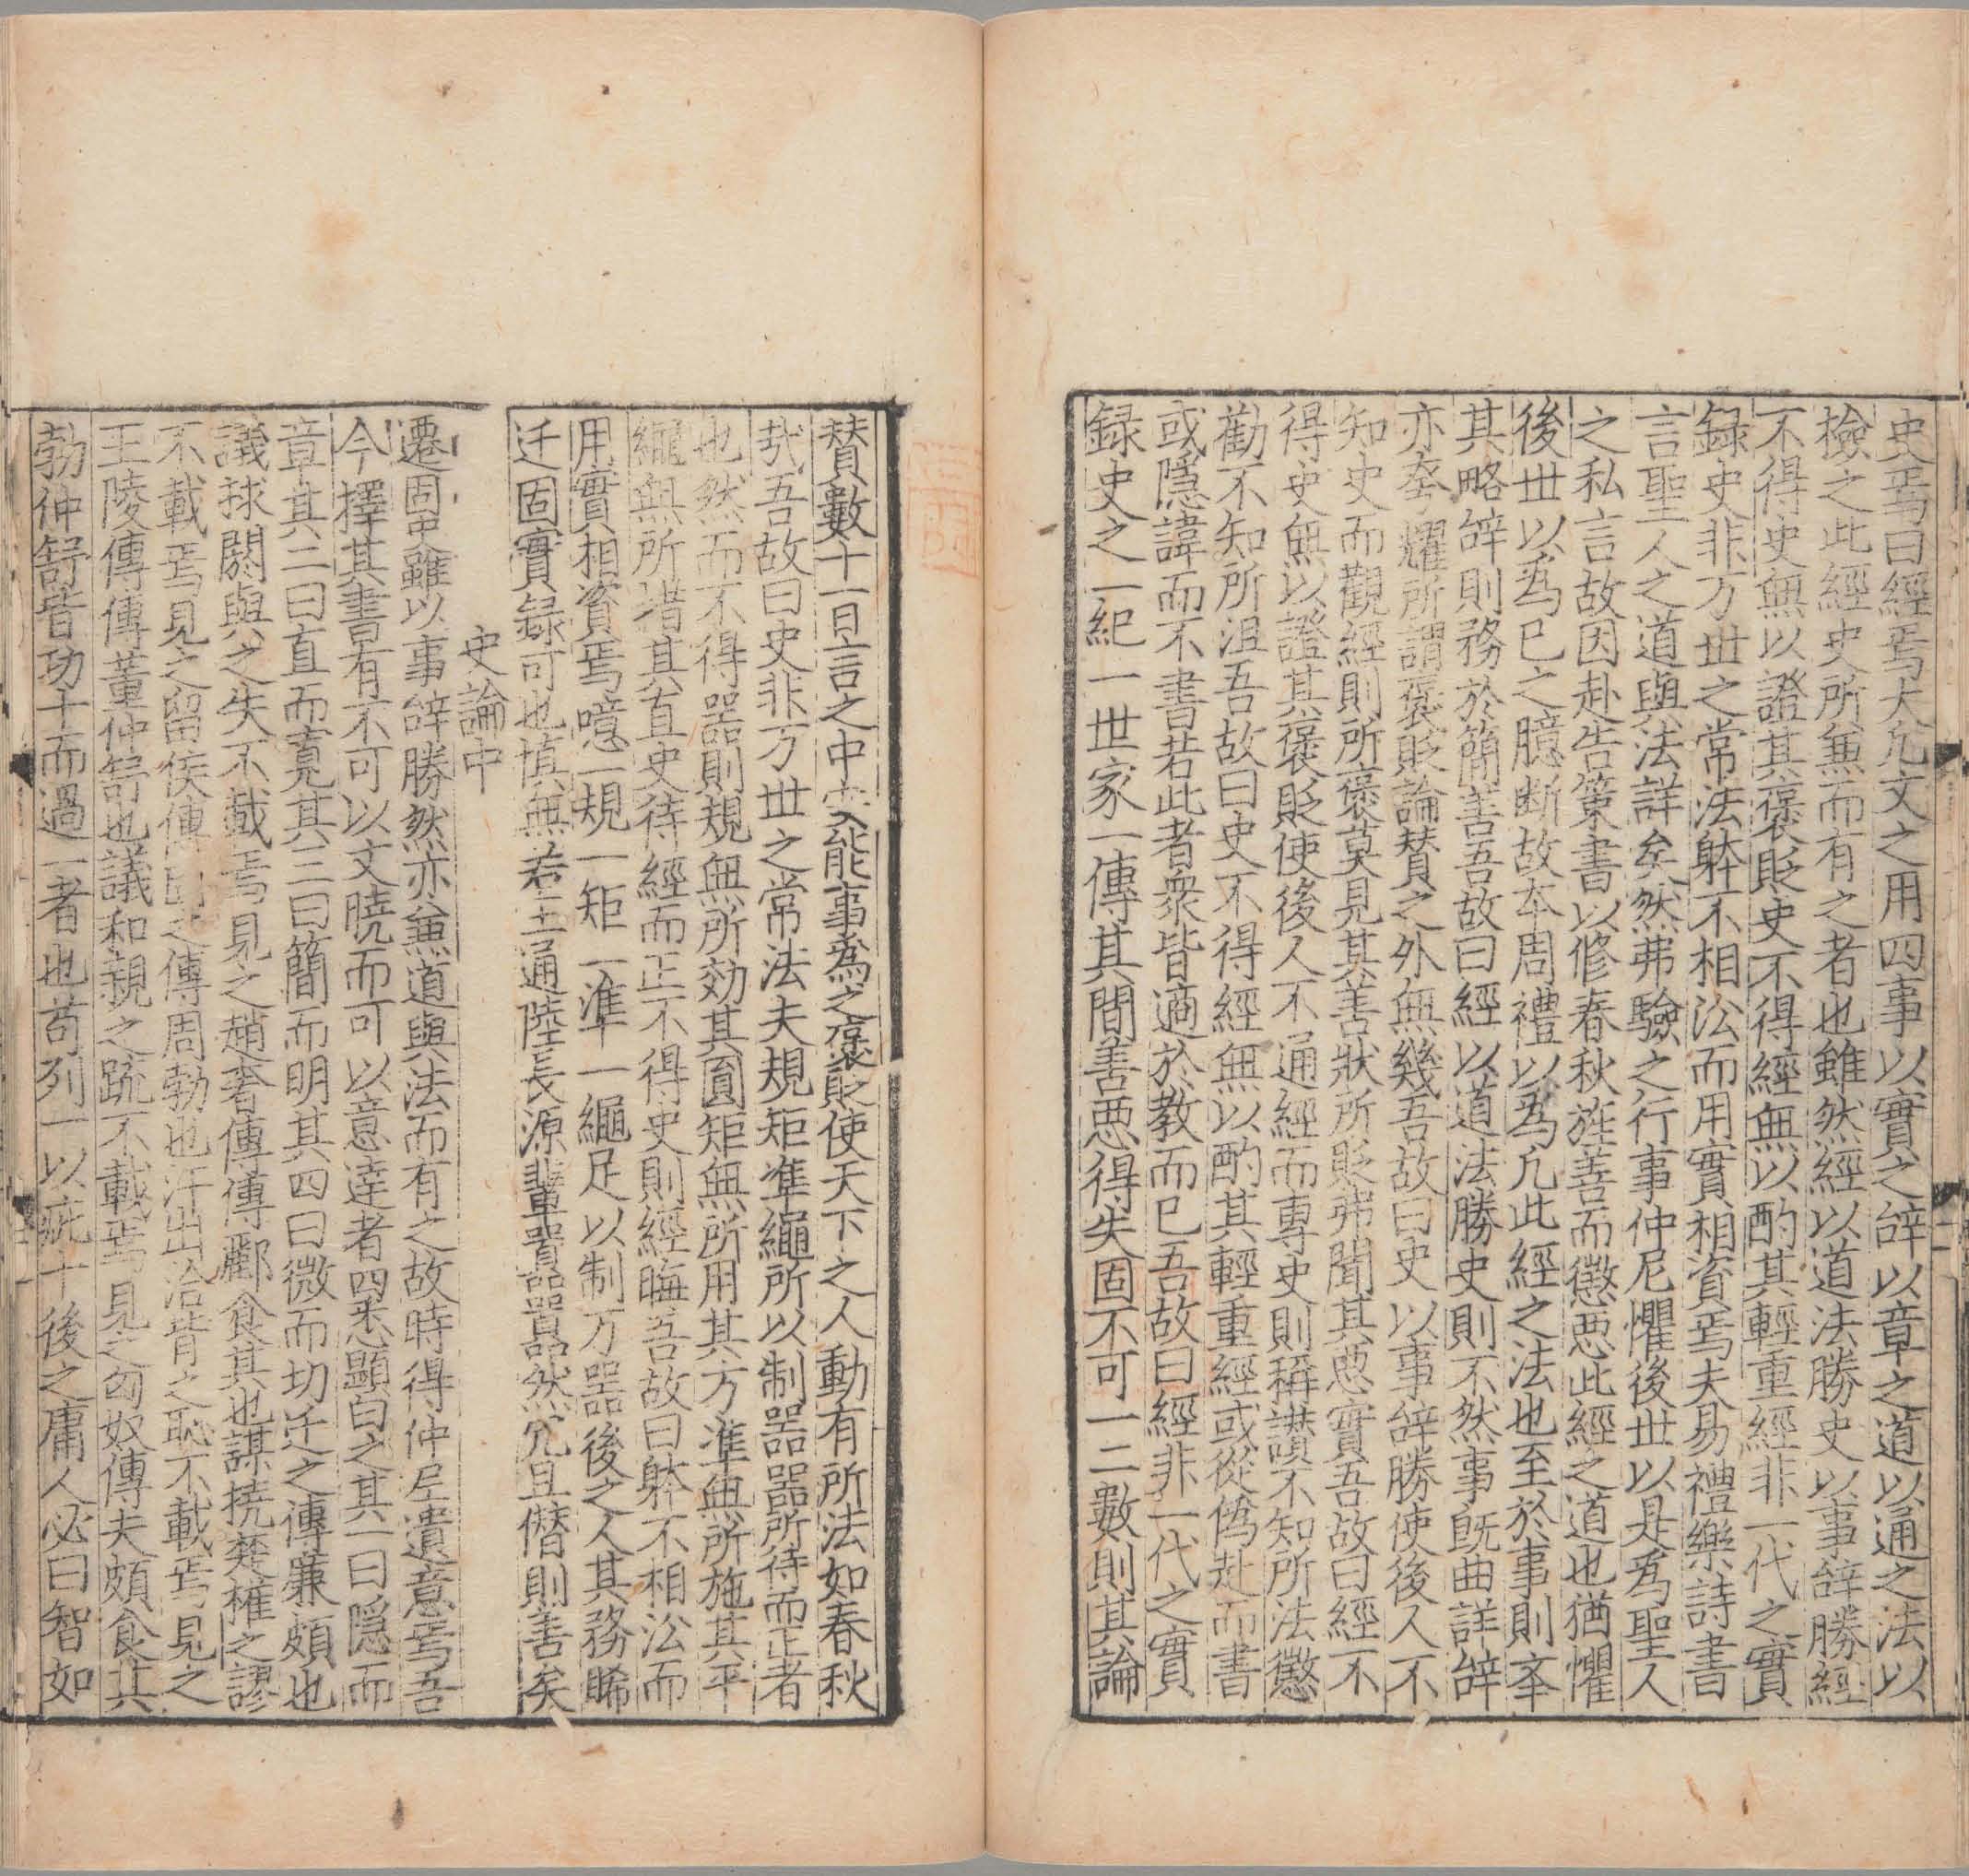 史焉曰經焉大凡文之用四事以實之辝以章之道以通之法以
撿之此經史所無而有之者也雖然經以道法勝史以事辝勝經
不得史無以證其褒貶史不得經無以酌其輕重經非一代之實
録史非万世之常法躰不相㳂而用實相資焉夫易禮樂詩書
言聖人之道與法詳矣然弗驗之行事仲尼懼後世以是爲聖人
之私言故因赴告策書以修春秋旌善而懲惡此經之道也猶懼
後世以爲己之臆断故本周禮以爲凡此經之法也至於事則㪯
其略辝則務於簡吾故曰經以道法勝史則不然事既曲詳辝
亦夸耀所謂褒貶論賛之外無幾吾故曰史以事辝勝使後人不
知史而觀經則所褒莫見其善狀所貶弗聞其惡實吾故曰經不
得史無以證其褒貶使後人不通經而專史則稱讃不知所法懲
勸不知所沮吾故曰史不得經無以酌其輕重經或從僞赴而書
或隱諱而不書若此者衆皆適於教而已吾故曰經非一代之實
録史之一紀一世家一傳其間善惡得失固不可一二數則其論
賛數十一日言之中安能事爲之褒貶使天下之人動有所法如春秋
㢤吾故曰史非万世之常法夫規矩準繩所以制器器所待而正者
也然而不得器則規無所効其圓矩無所用其方準無所施其平
繩無所措其直史待經而正不得史則經晦吾故曰躰不相㳂而
用實相資焉噫一規一矩一準一繩足以制万器後之人其務睎
迁固實録可也慎無若王通陸長源輩囂囂然冗且僭則善矣
史論中
遷固史雖以事辝勝然亦兼道與法而有之故時得仲尼遺意焉吾
今擇其書有不可以文曉而可以意達者四悉顯白之其一曰隱而
章其二曰直而寛其三曰簡而明其四曰微而切迁之傳廉頗也
議捄閼與之失不載焉見之趙奢傳傳酈食其也謀撓楚權之謬
不載焉見之留侯傳固之傳周勃也汗出洽背之恥不載焉見之
王陵傳傳董仲舒也議和親之疏不載焉見之匈奴傳夫頗食其
勃仲舒皆功十而過一者也苟列一以疵十後之庸人必曰智如